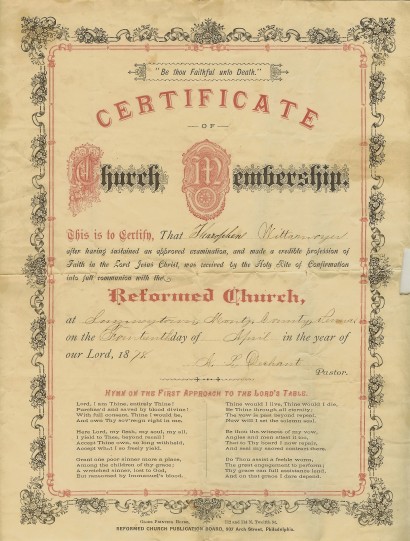 "Be thou Faithful unto Death."
CERTIFICATE
OF
Church Membership.
This is to Certify, That
after having sustained an approved examination, and made a credible profession of
Faith in the Lord Jesus Christ, was received by the Holy Rite of Confirmation
into full communion with the
Reformed Church,
at County
on the day of April in the year of
our Lord, 187
Pastor.
HYMN ON THE FIRST APPROACH TO THE LORD'S TABLE.
Lord, I am Thine, entirely Thine!
Purchas'd and saved by blood divine!
With full consent, Thine I would be,
And own Thy sov'reign right in me.
Here Lord, my flesh, my soul, my all,
I yield to Thee, beyond recall!
Accept Thine own, so long withheld,
Accept what I so freely yield.
Grant one poor sinner more a place,
Among the children of thy grace;
A wretched sinner, lost to God,
But ransomed by Immanuel's blood.
Thine would I live, Thine would I die,
Be Thine through all eternity;
The vow is past beyond repeal,
Now will I set the solemn seal.
Be thou the witness of my vow,
Angels and men attest it too,
That to Thy board I now repair,
And seal my sacred contract there.
Do Thou assist a feeble worm,
The great engagement to perform;
Thy grace can full assistance lend,
And on that grace I dare depend.
REFORMED CHURCH PUBLICATION BOARD, 907 Arch Street, Philadelphia.